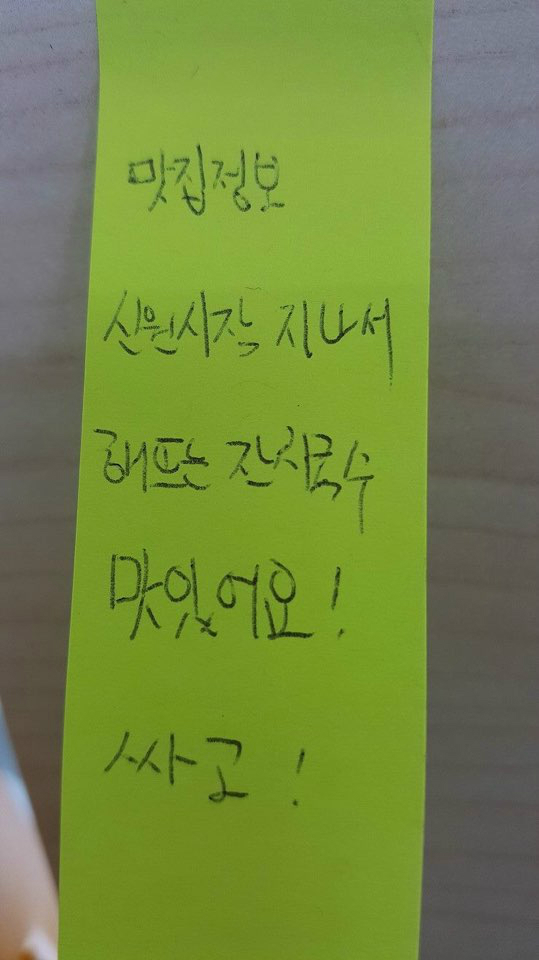 맛집정보
신원시작 지나서
해뜨는 잔치국수
맛있어요!
싸고!